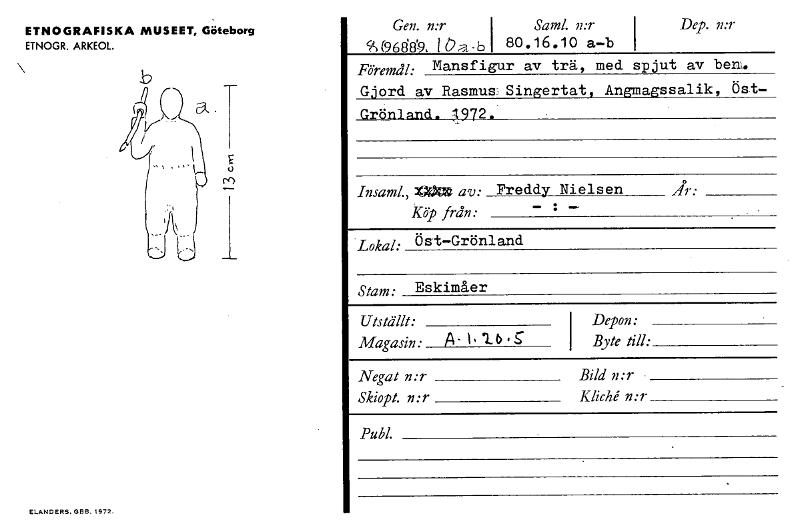 ETNOGRAFISKA MUSEET, Göteborg
ETNOGR. ARKEOL.
b
a.
13 cm
ELANDERS. GBB. 1972.
Gen. n:r Saml. n:r Dep. n:r
10 a-b 80.16.10 a-b
Föremål: Mansfigur av trä, med spjut av ben.
Gjord av Rasmus Singertat, Angmagssalik, Öst-
Grönland. 1972.
Insaml., av: Freddy Nielsen År:
Köp från: - : -
Lokal: Öst-Grönland
Stam: Eskimåer
Utställt: Depon:
Magasin: A.1.20.5 Byte till:
Negat n:r Bild n:r
Skiopt. n:r Kliché n:r
Publ.